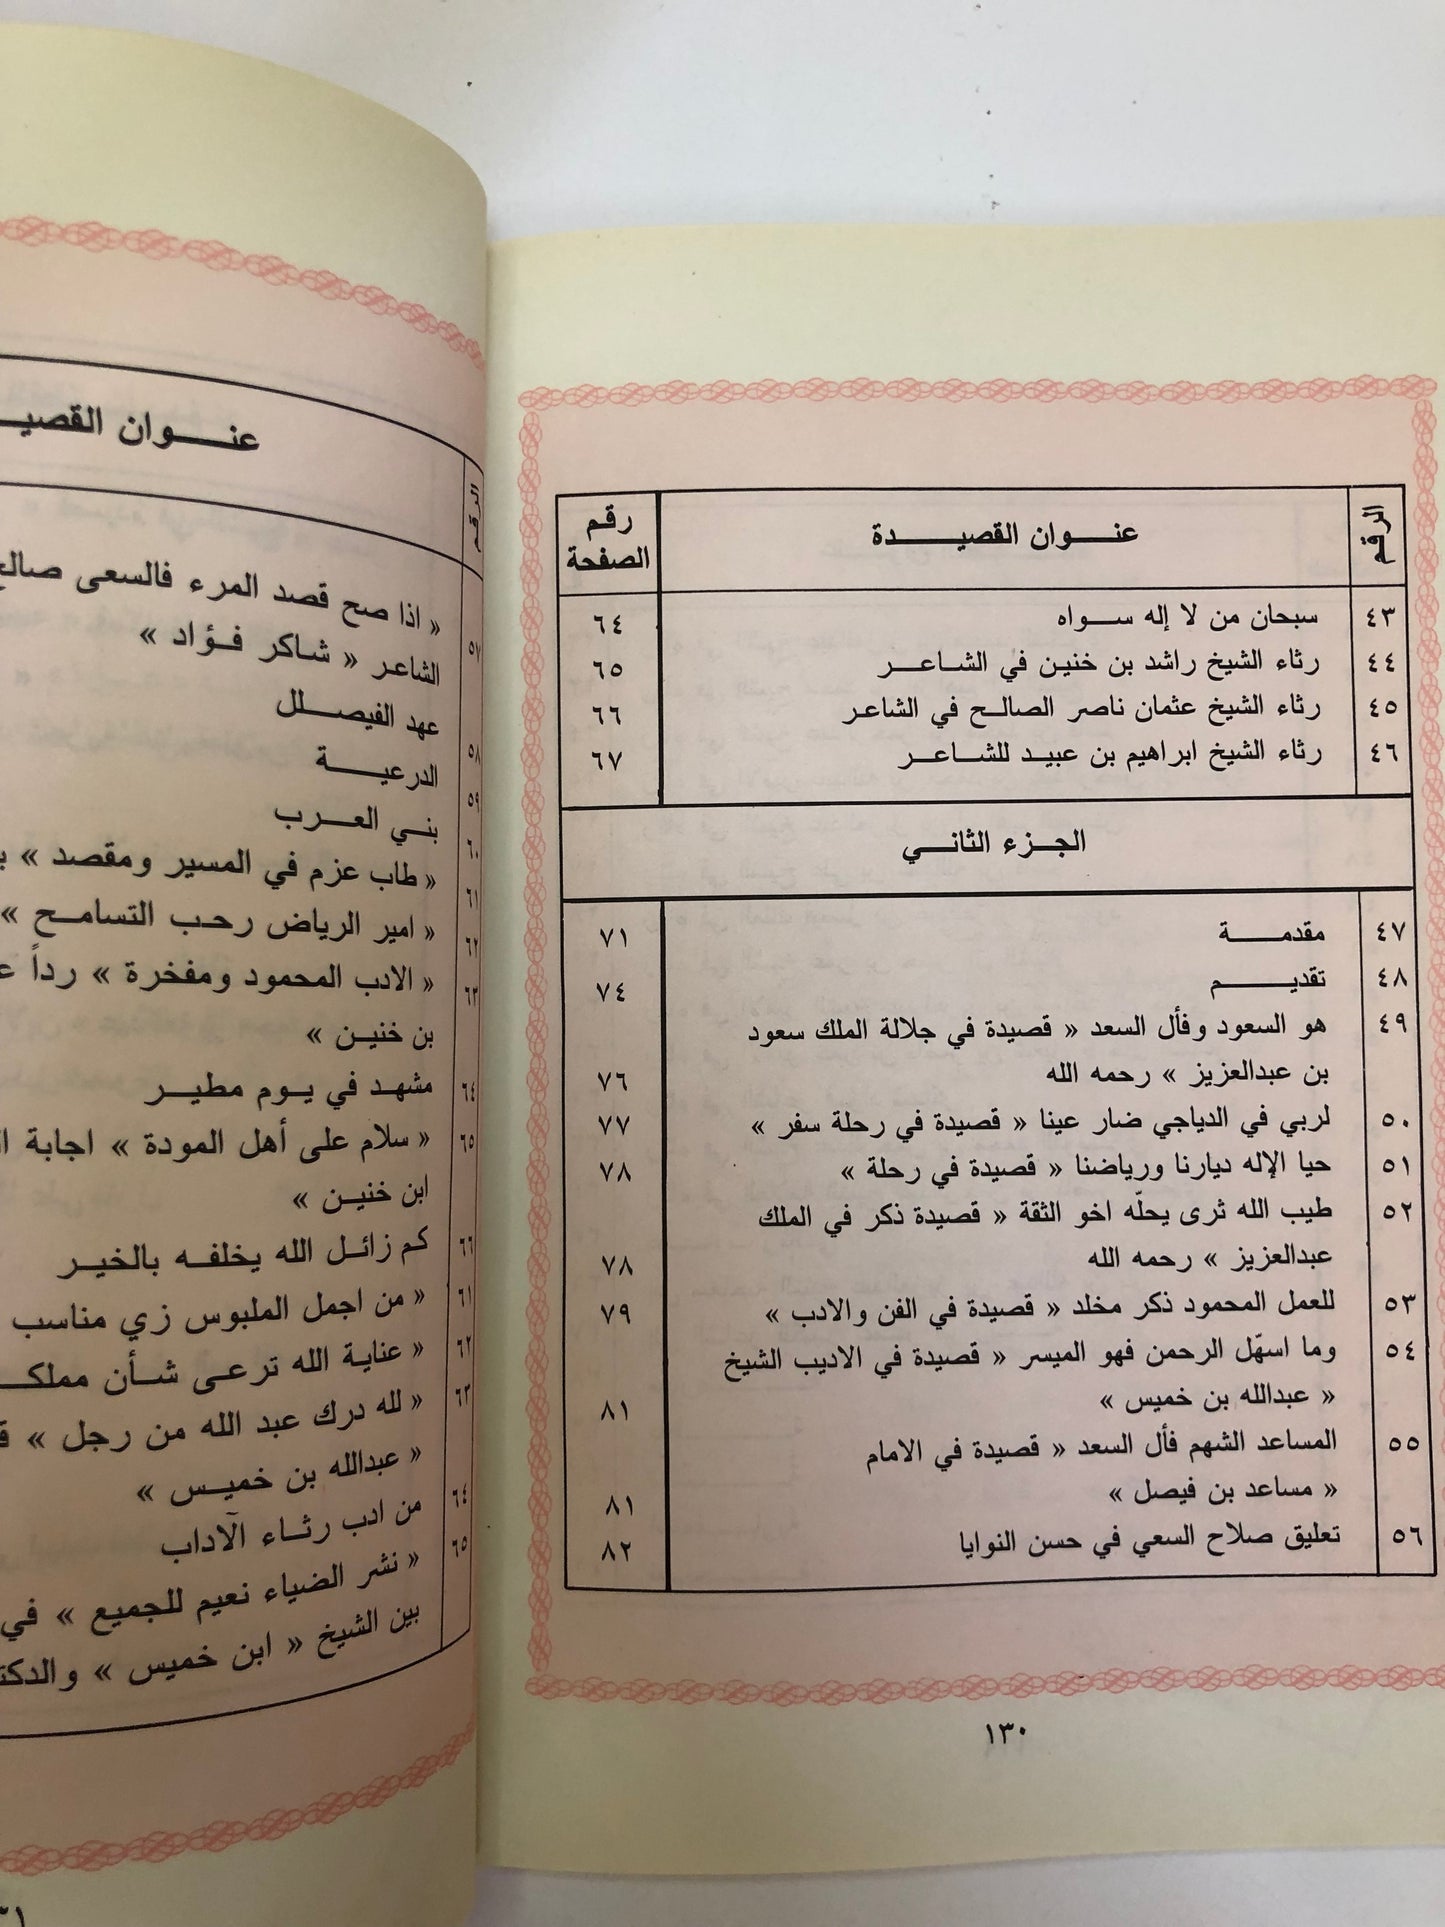 الرقم عنـــوان القصيـــدة رقم الصفحة
٤٣ سبحان من لا إله ســواه ٦٤
٤٤ رثاء الشيخ راشد بن خنين في الشاعــر ٦٥
٤٥ رثاء الشيخ عثمان ناصر الصالح في الشاعر ٦٦
٤٦ رثاء الشيخ ابراهيم بن عبيد للشاعــر ٦٧
الجـزء الثاني
٤٧ مقدمــــة ٧١
٤٨ تقديـــــم ٧٤
٤٩ هو السعود وفأل السعد « قصيدة في جلالة الملك سعود
بن عبدالعزيز » رحمه الله ٧٦
٥٠ لربي في الدياجي ضار عينا « قصيدة في رحلة سفر » ٧٧
٥١ حيا الإله ديارنا ورياضنا « قصيدة في رحلة » ٧٨
٥٢ طيب الله ثرى يحلّه اخو الثقة « قصيدة ذكر في الملك
عبدالعزيز » رحمه الله ٧٨
٥٣ للعمل المحمود ذكر مخلد « قصيدة في الفن والادب » ٧٩
٥٤ وما اسهّل الرحمن فهو الميسر « قصيدة في الاديب الشيخ
« عبدالله بن خميس » ٨١
٥٥ المساعد الشهم فأل السعد « قصيدة في الامام
« مساعد بن فيصل » ٨١
٥٦ تعليق صلاح السعي في حسن النوايا ٨٢
١٣٠
الرقم عنـــوان
٥٧ « اذا صح قصد المرء فالسعى
الشاعر « شاكر فـؤاد »
٥٨ عهد الفيصـــلل
٥٩ الدرعيــــة
٦٠ بنـي العـــرب
٦١ « طاب عزم في المسير ومقصد »
٦٢ « امير الرياض رحـب التسامـح »
٦٣ « الادب المحمود ومفخرة » رداً
بن خنيـن »
٦٤ مشهـد في يـوم مطيـر
٦٥ « سلام على أهل المودة » اجابة
ابن خنيـن »
٦٦ كم زائـل الله يخلفـه بالخير
٦١ « من اجمل الملبوس زي مناسب
٦٢ « عناية الله ترعـى شـأن
٦٣ « لله درك عبد الله من رجل »
« عبدالله بن خميـس »
٦٤ من ادب رثـاء الآداب
٦٥ « نشر الضياء نعيم للجميع » في
بين الشيخ « ابن خميس »